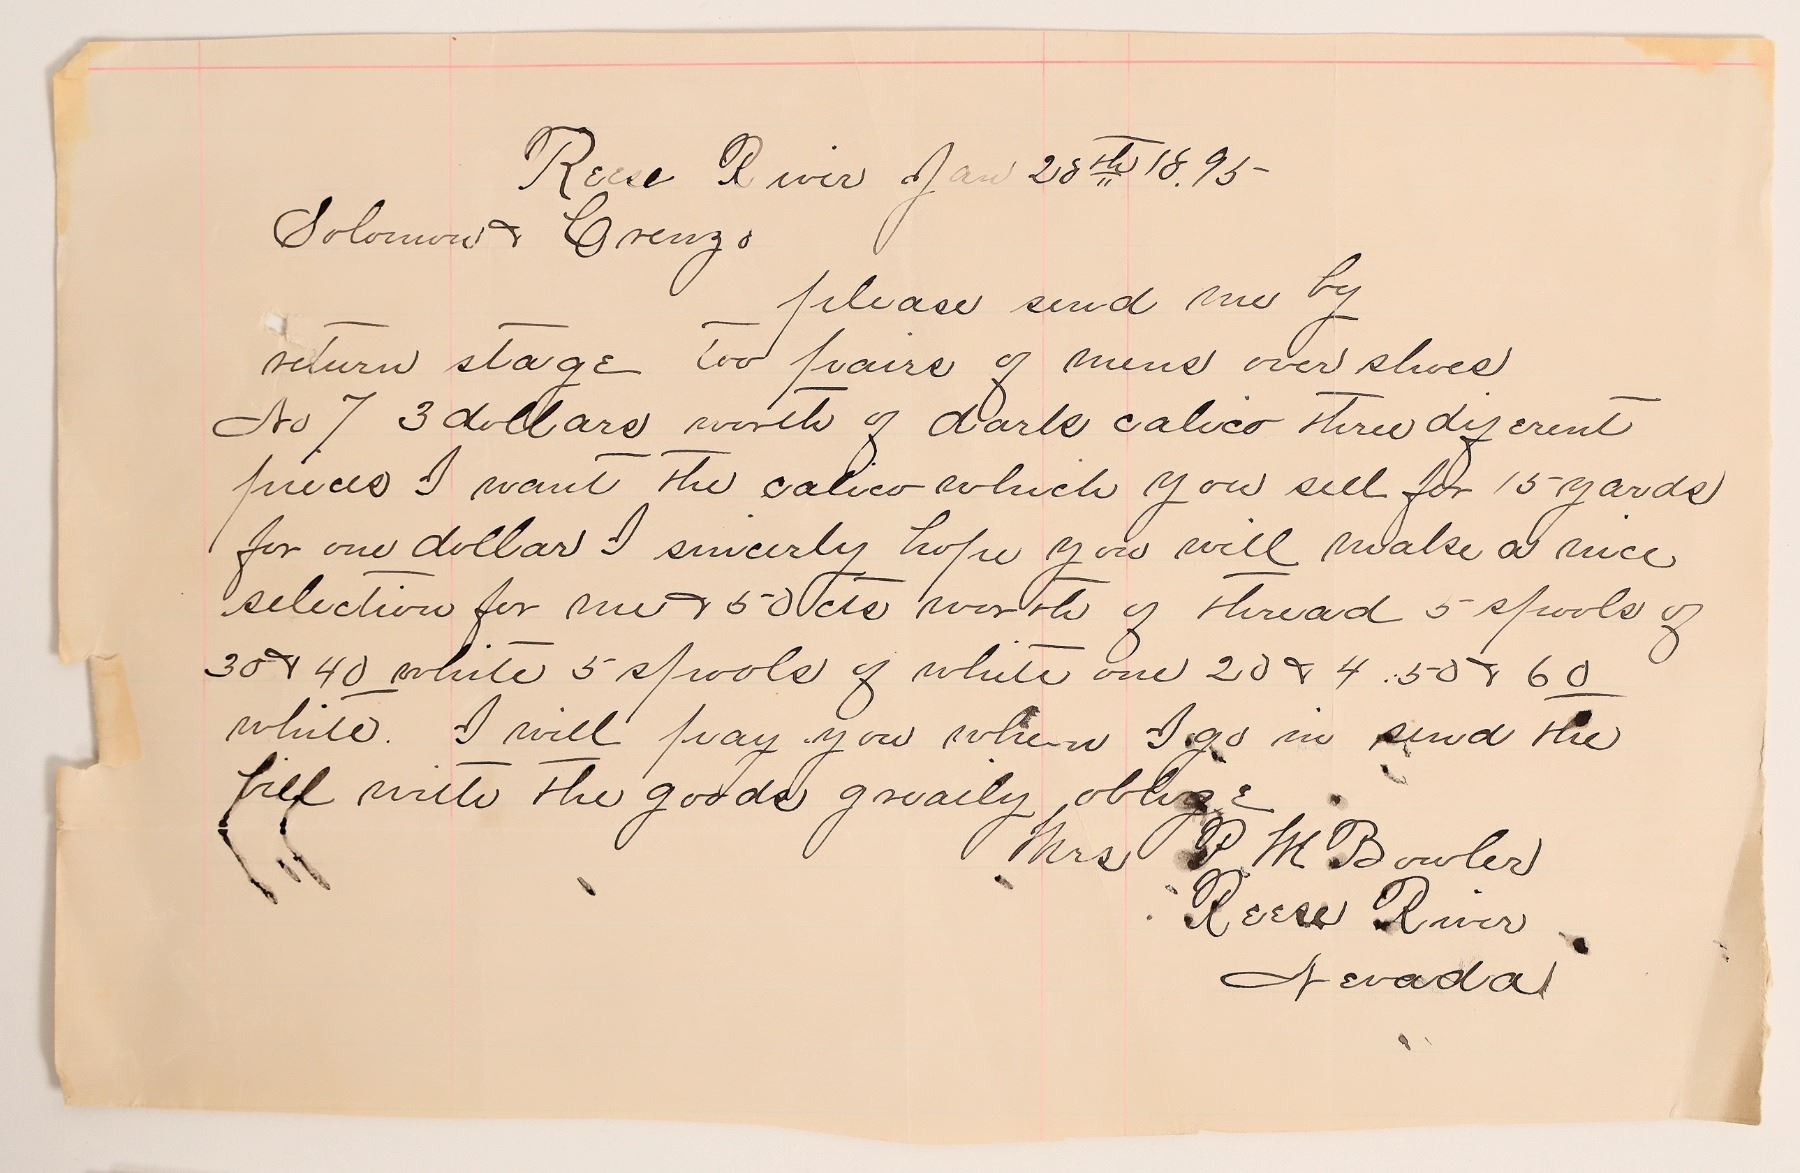 Reese River Jan 28th 18.95
Solomon & Crenzo
please send me by
return stage too pairs of mens over shoes
No 7 3 dollars worth of dark calico three diferent
pieces I want the calico which you sell for 15 yards
for one dollar I sincerly hope you will make a nice
selection for me & 50 cts worth of thread 5 spools of
30 & 40 white 5 spools of white one 20 & 4 .50 & 60
white. I will pay you when I go in send the
bill with the goods greaily oblige
Mrs P M Bowler
Reese River
Nevada